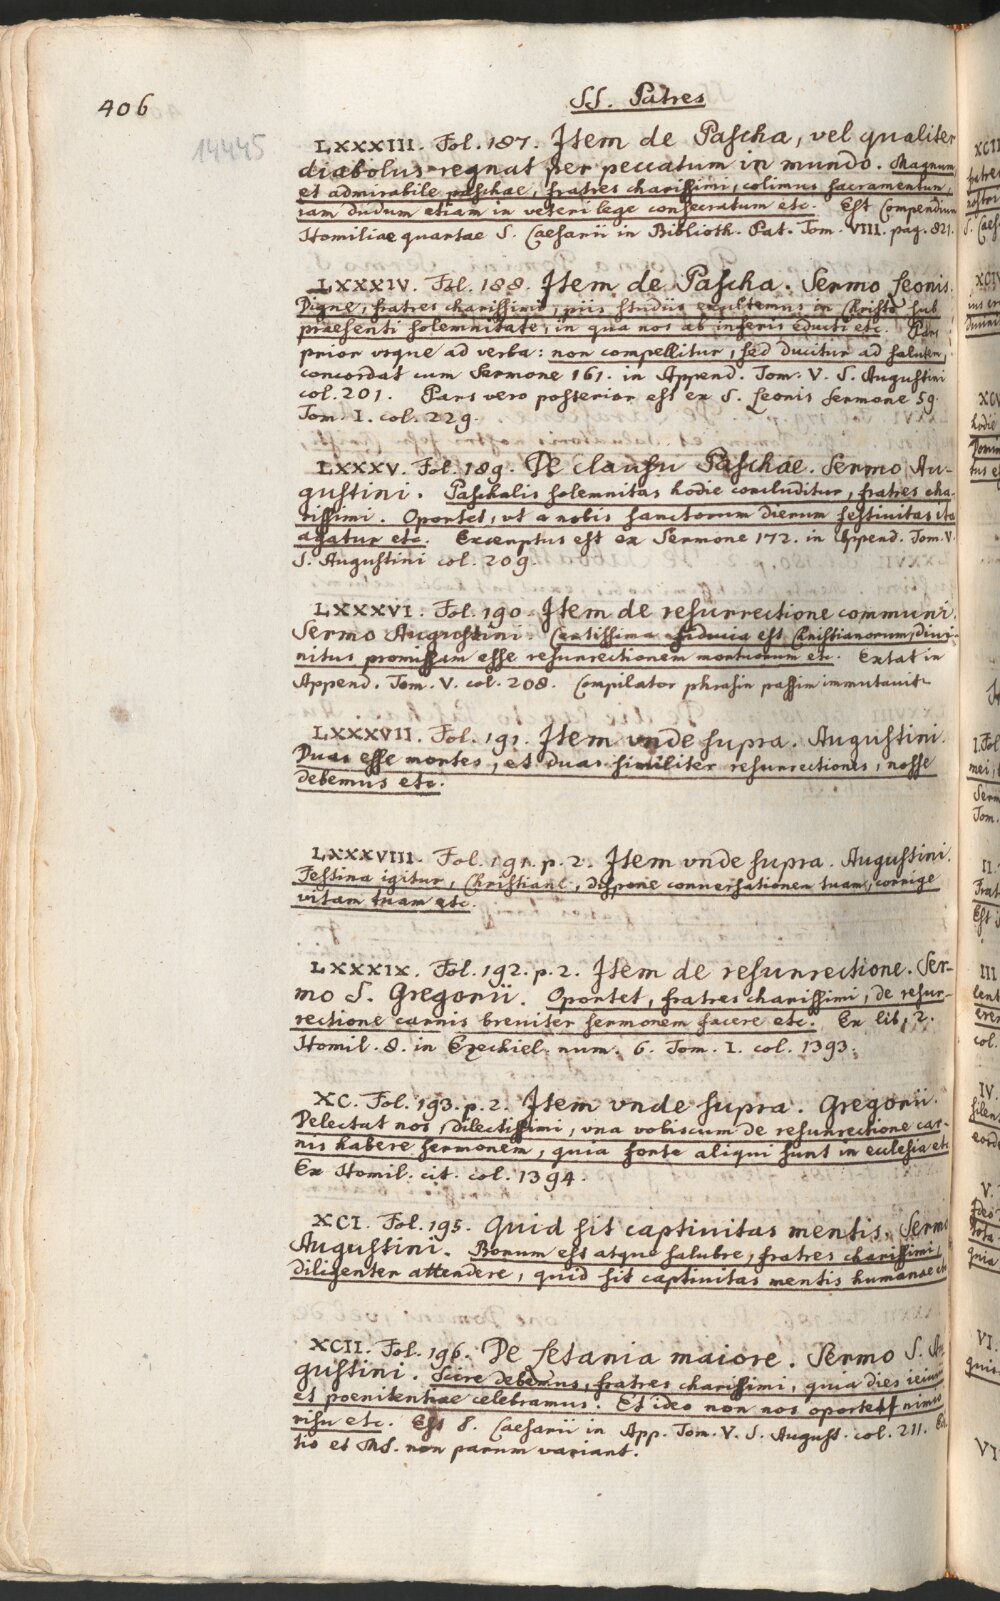 406
SS. Patres
14445
LXXXIII. Fol. 187. Item de Pascha, vel qualiter
diabolus regnat per peccatum in mundo. Magnum
et admirabile paschae, fratres charissimi, colimus sacramentum,
iam dudum etiam in veteri lege consecratum etc. Est Compendium
Homiliae quartae S. Caesarii in Biblioth. Pat. Tom. VIII. pag. 821.
LXXXIV. Fol. 188. Item de Pascha. Sermo Leonis.
Digne, fratres charissimi, piis studiis exultemus in Christo sub
praesenti solemnitate, in qua nos ab inferis educti etc. Pars
prior vsque ad verba: non compellitur, sed ducitur ad salutem,
concordat cum Sermone 161. in Append. Tom. V. S. Augustini
col. 201. Pars vero posterior est ex S. Leonis sermone 59.
Tom. I. col. 229.
LXXXV. Fol. 189. De clausu Paschae. Sermo Au-
gustini. Paschalis solemnitas hodie concluditur, fratres cha-
rissimi. Oportet, vt a nobis sanctorum dierum festiuitas ita
agatur etc. Excerptus est ex Sermone 172. in Append. Tom. V.
S. Augustini col. 209.
LXXXVI. Fol. 190. Item de resurrectione communi.
Sermo Augustini. Certissima fiducia est Christianorum, diui-
nitus promissam esse resurrectionem mortuorum etc. Extat in
Append. Tom. V. col. 208. Compilator phrasin passim immutauit.
LXXXVII. Fol. 191. Item vnde supra. Augustini.
Duas esse mortes, et duas similiter resurrectiones, nosse
debemus etc.
LXXXVIII. Fol. 191. p. 2. Item vnde supra. Augustini.
Festina igitur, Christiane, dispone conuersationem tuam, corrige
vitam tuam etc.
LXXXIX. Fol. 192. p. 2. Item de resurrectione. Ser-
mo S. Gregorii. Oportet, fratres charissimi, de resur-
rectione carnis breuiter sermonem facere etc. Ex lib. 2.
Homil. 8. in Ezechiel. num. 6. Tom. I. col. 1393.
XC. Fol. 193. p. 2. Item vnde supra. Gregorii.
Delectat nos, dilectissimi, vna vobiscum de resurrectione car-
nis habere sermonem, quia forte aliqui sunt in ecclesia etc
Ex Homil. cit. col. 1394.
XCI. Fol. 195. Quid sit captiuitas mentis. Sermo
Augustini. Bonum est atque salubre, fratres charissimi,
diligenter attendere, quid sit captiuitas mentis humanae etc
XCII. Fol. 196. De Letania maiore. Sermo S. Au-
gustini. Scire debemus, fratres charissimi, quia dies ieiunii
et poenitentiae celebramus. Et ideo non nos oportet nimio
risu etc. Est S. Caesarii in App. Tom. V. S. August. col. 211. Edi-
tio et MS. non parum variant.